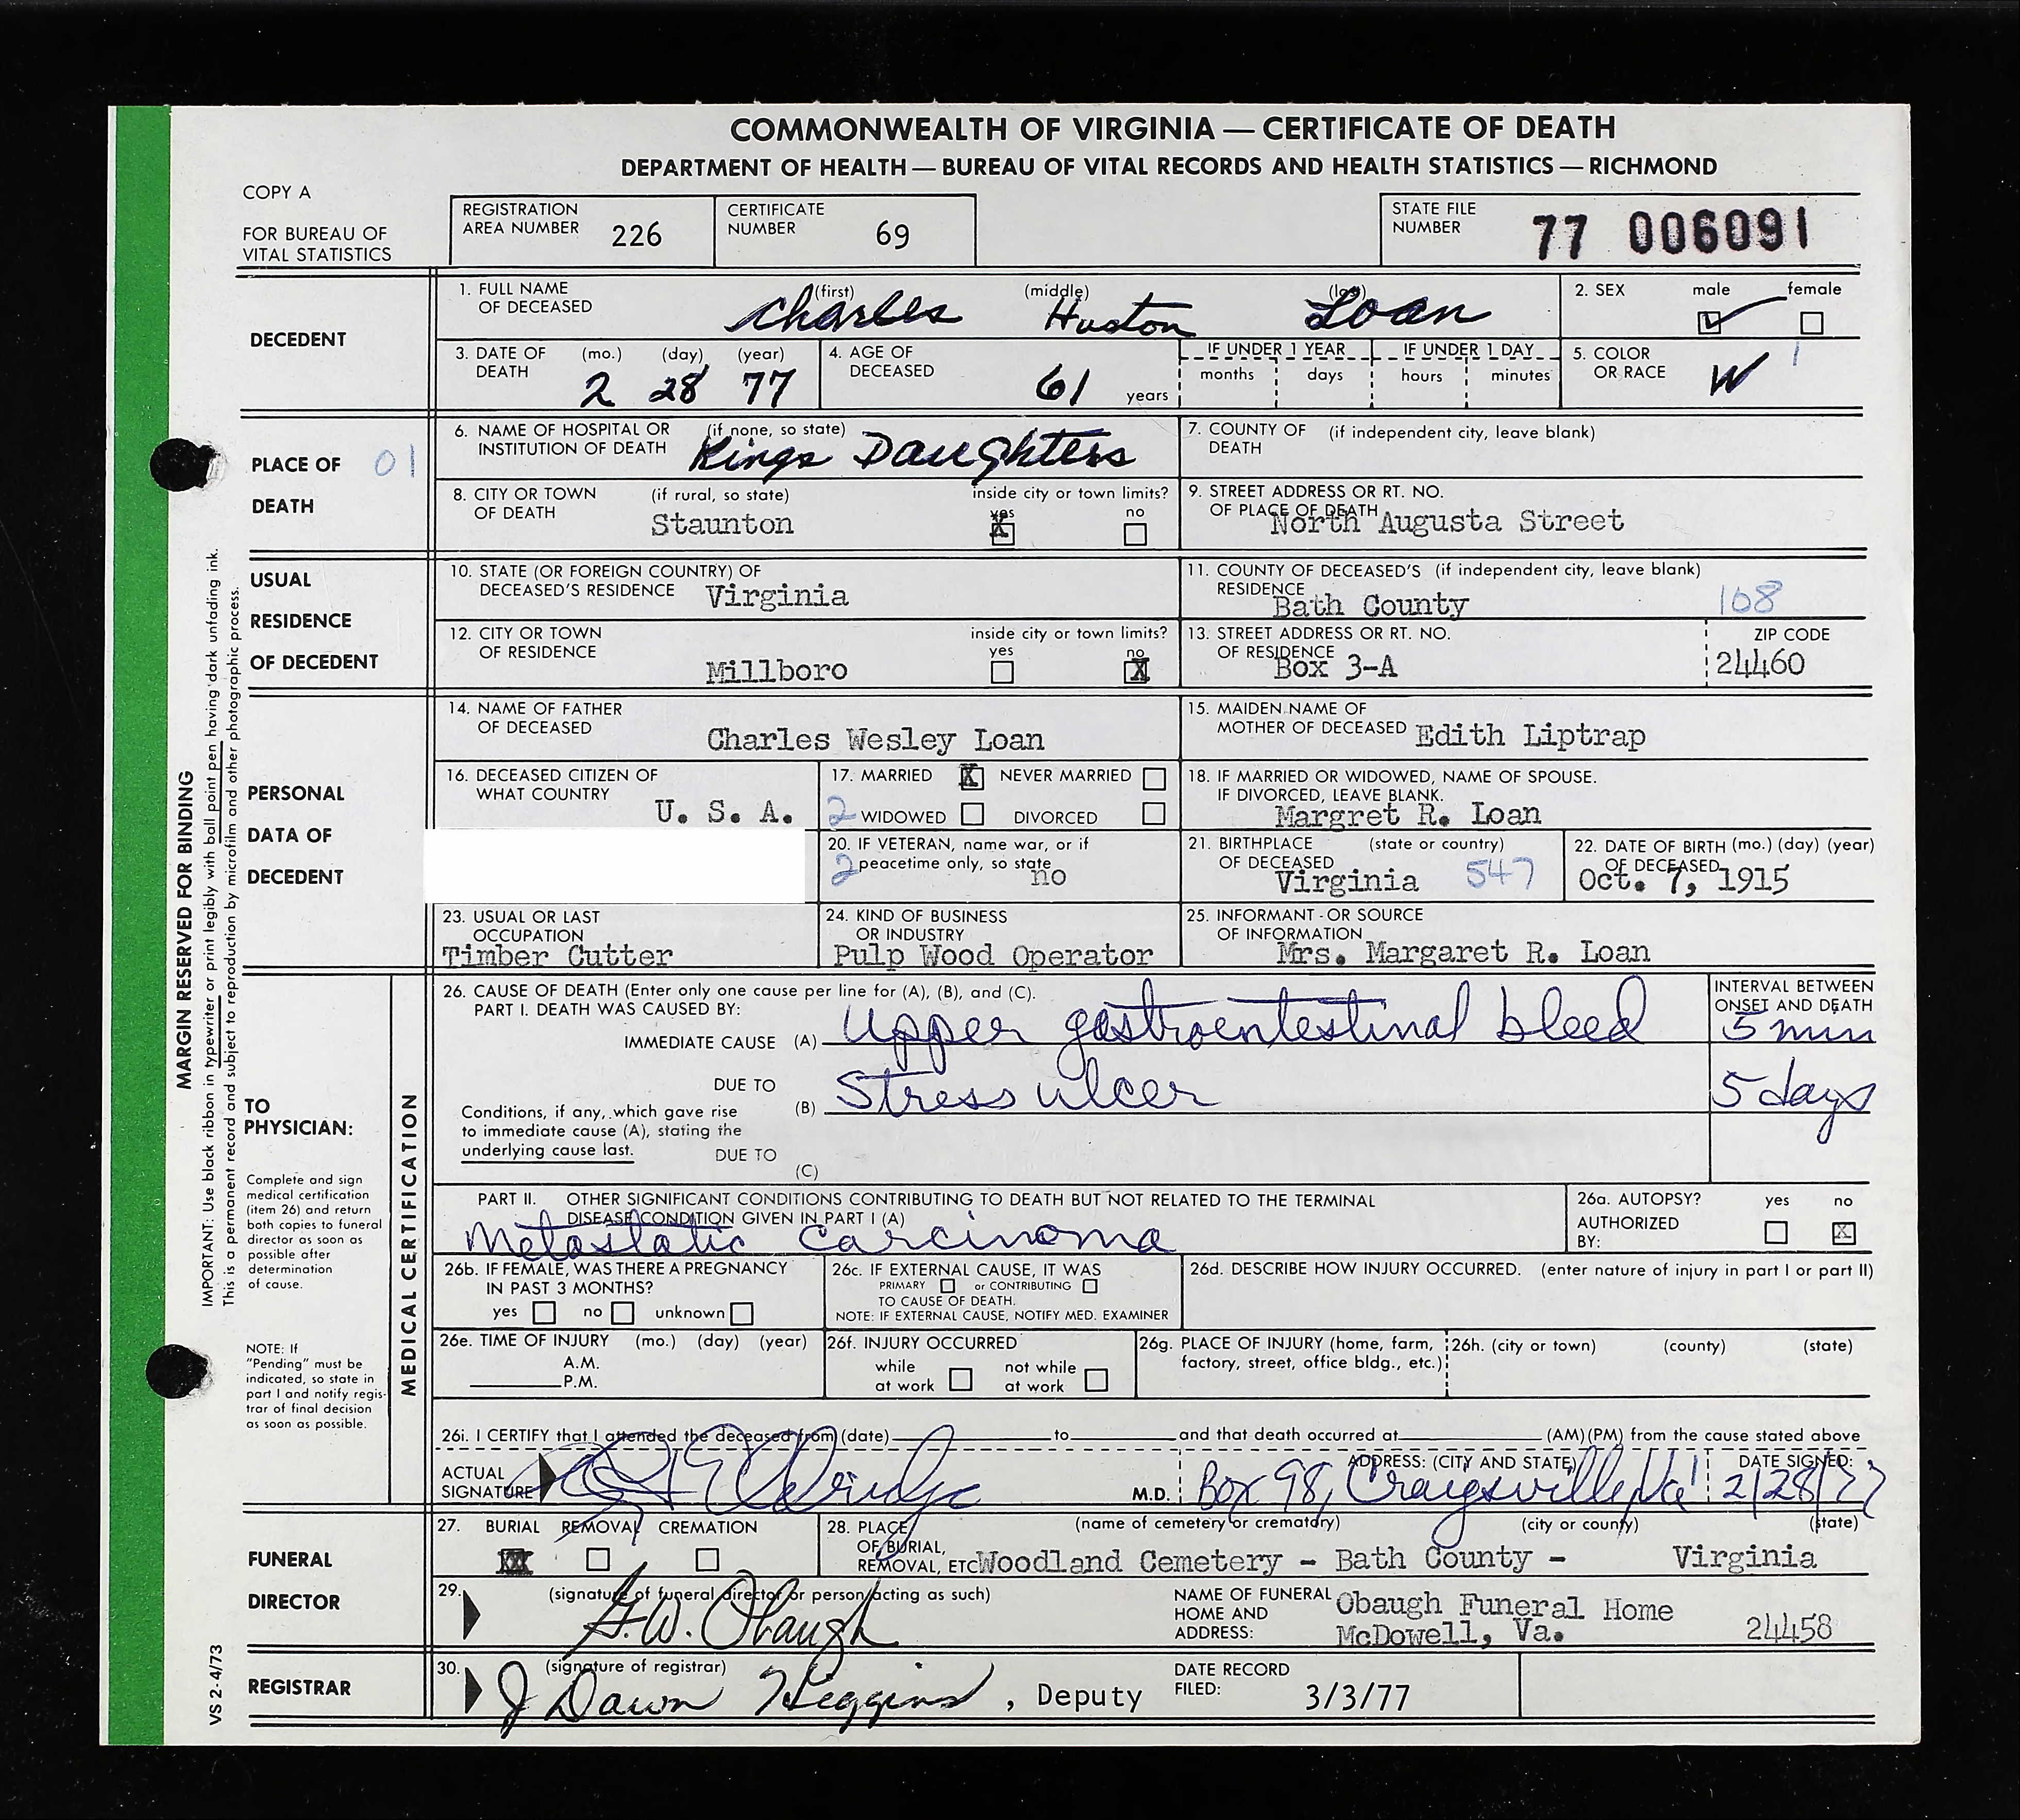 COMMONWEALTH OF VIRGINIA — CERTIFICATE OF DEATH
DEPARTMENT OF HEALTH — BUREAU OF VITAL RECORDS AND HEALTH STATISTICS — RICHMOND
COPY A
FOR BUREAU OF
VITAL STATISTICS
REGISTRATION
AREA NUMBER 226
CERTIFICATE
NUMBER 69
STATE FILE
NUMBER 77 006091
DECEDENT
1. FULL NAME (first) (middle) (last)
OF DECEASED Charles Huston Loan
2. SEX male female
3. DATE OF (mo.) (day) (year)
DEATH 2 28 77
4. AGE OF
DECEASED 61 years
IF UNDER 1 YEAR IF UNDER 1 DAY
months days hours minutes
5. COLOR
OR RACE W 1
PLACE OF 01
DEATH
6. NAME OF HOSPITAL OR (if none, so state)
INSTITUTION OF DEATH Kings Daughters
7. COUNTY OF (if independent city, leave blank)
DEATH
8. CITY OR TOWN (if rural, so state) inside city or town limits?
OF DEATH Staunton yes X no
9. STREET ADDRESS OR RT. NO.
OF PLACE OF DEATH
North Augusta Street
USUAL
RESIDENCE
OF DECEDENT
10. STATE (OR FOREIGN COUNTRY) OF
DECEASED'S RESIDENCE Virginia
11. COUNTY OF DECEASED'S (if independent city, leave blank)
RESIDENCE
Bath County 108
12. CITY OR TOWN inside city or town limits?
OF RESIDENCE yes no
Millboro X
13. STREET ADDRESS OR RT. NO. ZIP CODE
OF RESIDENCE
Box 3-A 24460
PERSONAL
DATA OF
DECEDENT
14. NAME OF FATHER
OF DECEASED
Charles Wesley Loan
15. MAIDEN NAME OF
MOTHER OF DECEASED Edith Liptrap
16. DECEASED CITIZEN OF
WHAT COUNTRY
U. S. A.
17. MARRIED X NEVER MARRIED
2 WIDOWED DIVORCED
18. IF MARRIED OR WIDOWED, NAME OF SPOUSE.
IF DIVORCED, LEAVE BLANK.
Margret R. Loan
20. IF VETERAN, name war, or if
2 peacetime only, so state
no
21. BIRTHPLACE (state or country)
OF DECEASED
Virginia 547
22. DATE OF BIRTH (mo.) (day) (year)
OF DECEASED
Oct. 7, 1915
23. USUAL OR LAST
OCCUPATION
Timber Cutter
24. KIND OF BUSINESS
OR INDUSTRY
Pulp Wood Operator
25. INFORMANT - OR SOURCE
OF INFORMATION
Mrs. Margaret R. Loan
MARGIN RESERVED FOR BINDING
IMPORTANT: Use black ribbon in typewriter or print legibly with ball point pen having dark unfading ink.
This is a permanent record and subject to reproduction by microfilm and other photographic process.
VS 2-4/73
TO
PHYSICIAN:
Complete and sign
medical certification
(item 26) and return
both copies to funeral
director as soon as
possible after
determination
of cause.
NOTE: If
"Pending" must be
indicated, so state in
part I and notify regis-
trar of final decision
as soon as possible.
MEDICAL CERTIFICATION
26. CAUSE OF DEATH (Enter only one cause per line for (A), (B), and (C).
PART I. DEATH WAS CAUSED BY:
INTERVAL BETWEEN
ONSET AND DEATH
IMMEDIATE CAUSE (A) Upper gastrointestinal bleed 5 min
DUE TO
(B) Stress ulcer 5 days
Conditions, if any, which gave rise
to immediate cause (A), stating the
underlying cause last.
DUE TO
(C)
PART II. OTHER SIGNIFICANT CONDITIONS CONTRIBUTING TO DEATH BUT NOT RELATED TO THE TERMINAL
DISEASE CONDITION GIVEN IN PART I (A)
Metastatic Carcinoma
26a. AUTOPSY? yes no
AUTHORIZED
BY: X
26b. IF FEMALE, WAS THERE A PREGNANCY
IN PAST 3 MONTHS?
yes no unknown
26c. IF EXTERNAL CAUSE, IT WAS
PRIMARY or CONTRIBUTING
TO CAUSE OF DEATH.
NOTE: IF EXTERNAL CAUSE, NOTIFY MED. EXAMINER
26d. DESCRIBE HOW INJURY OCCURRED. (enter nature of injury in part I or part II)
26e. TIME OF INJURY (mo.) (day) (year)
A.M.
P.M.
26f. INJURY OCCURRED
while not while
at work at work
26g. PLACE OF INJURY (home, farm,
factory, street, office bldg., etc.)
26h. (city or town) (county) (state)
26i. I CERTIFY that I attended the deceased from (date) to and that death occurred at (AM) (PM) from the cause stated above
ACTUAL
SIGNATURE M.D.
ADDRESS: (CITY AND STATE)
Box 98, Craigsville Va
DATE SIGNED:
2/28/77
FUNERAL
DIRECTOR
27. BURIAL REMOVAL CREMATION
28. PLACE (name of cemetery or crematory) (city or county) (state)
OF BURIAL,
REMOVAL, ETC Woodland Cemetery - Bath County - Virginia
29. (signature of funeral director or person acting as such)
G.W. Obaugh
NAME OF FUNERAL
HOME AND
ADDRESS:
Obaugh Funeral Home
McDowell, Va. 24458
REGISTRAR
30. (signature of registrar)
J Dawn Higgins, Deputy
DATE RECORD
FILED: 3/3/77